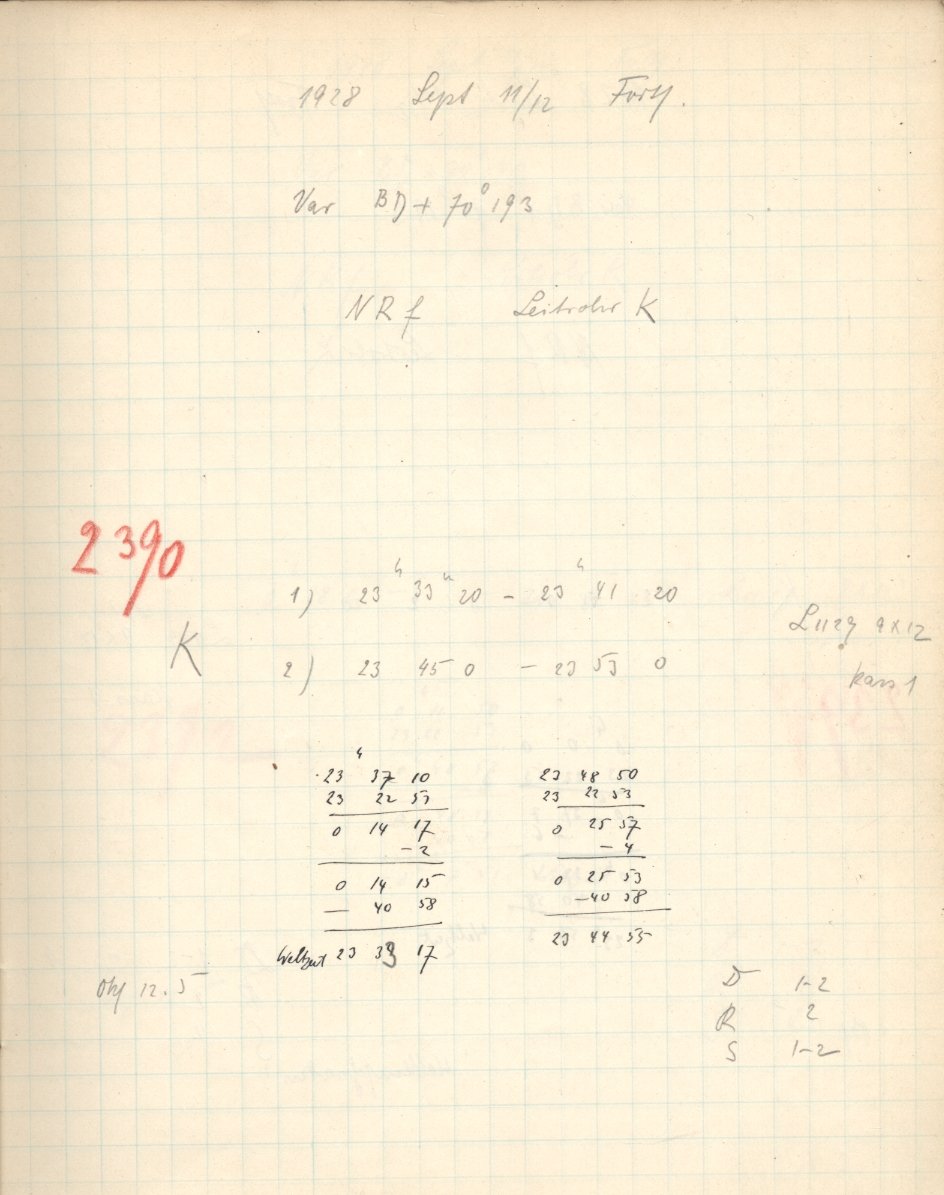 1928 Sept 11/12 Forts.
Var BD + 70° 193
NRf Leitrohr K
2390
1) 23ʰ 33ᵐ 20 – 23ʰ 41 20
K
L 1129 9x12
2) 23 45 0 – 23 53 0
kass 1
23ʰ 37 10 23 48 50
23 22 53 23 22 53
0 14 17 0 25 57
– 2 – 4
0 14 15 0 25 53
– 40 58 – 40 58
Weltzeit 23 33 17 23 44 55
Obj 12.5
D 1–2
R 2
S 1–2